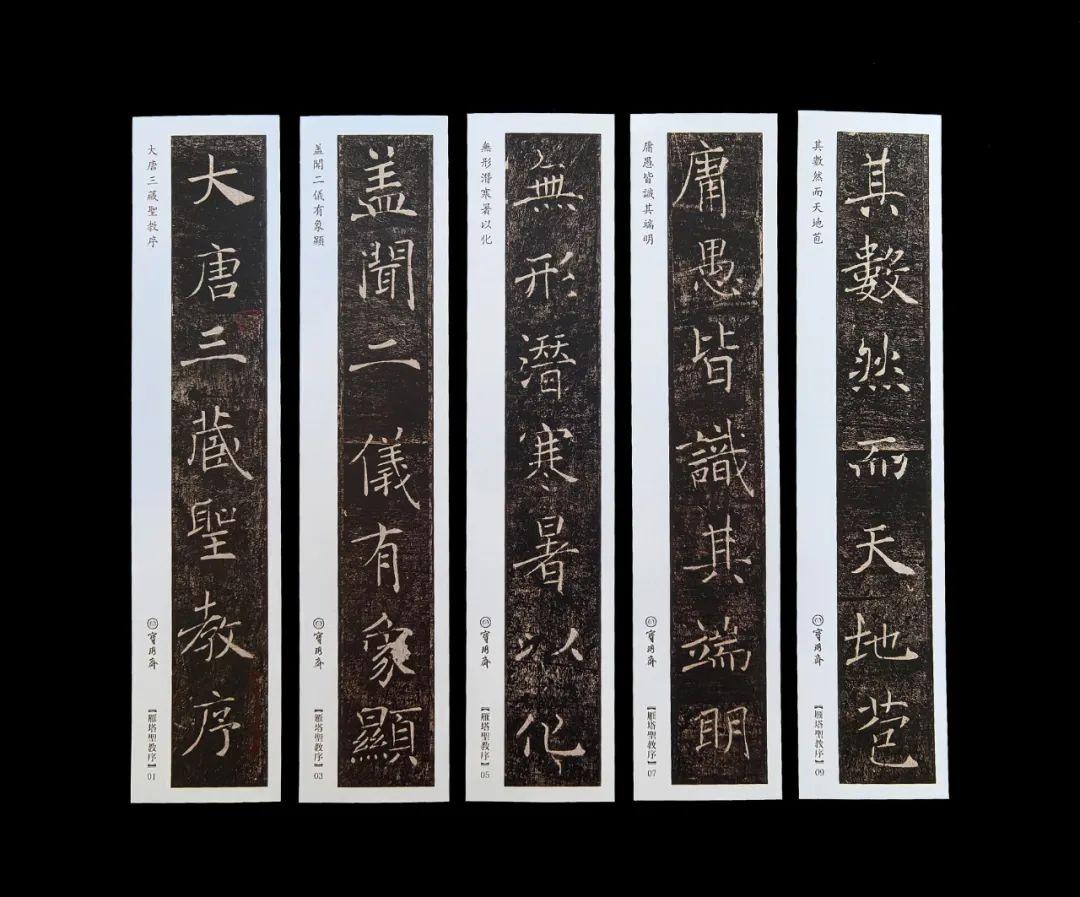 大唐三藏聖教序
【雁塔聖教序】01
大唐三藏聖教序
盖聞二儀有象顯
【雁塔聖教序】03
盖聞二儀有象顯
無形潛寒暑以化
【雁塔聖教序】05
無形潛寒暑以化
庸愚皆識其端明
【雁塔聖教序】07
庸愚皆識其端明
其數然而天地苞
【雁塔聖教序】09
其數然而天地苞